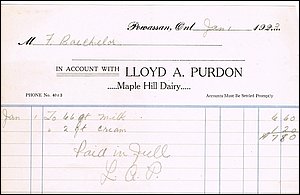 Powassan, Ont Jan 1 1923
M F. Baechelor
IN ACCOUNT WITH LLOYD A. PURDON
Maple Hill Dairy
PHONE No. Accounts Must be Settled Promptly
Jan 1 To 66 qt milk 6 60
" 2 pt cream 1 20
$ 7 80
Paid in full
L. A. P.